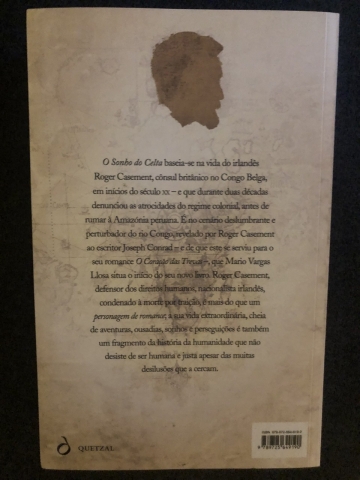 O Sonho do Celta baseia-se na vida do irlandês
Roger Casement, cônsul britânico no Congo Belga,
em inícios do século XX – e que durante duas décadas
denunciou as atrocidades do regime colonial, antes de
rumar à Amazónia peruana. É no cenário deslumbrante e
perturbador do rio Congo, revelado por Roger Casement
ao escritor Joseph Conrad – e de que este se serviu para o
seu romance O Coração das Trevas –, que Mario Vargas
Llosa situa o início do seu novo livro. Roger Casement,
defensor dos direitos humanos, nacionalista irlandês,
condenado à morte por traição, é mais do que um
personagem de romance; a sua vida extraordinária, cheia
de aventuras, ousadias, sonhos e perseguições é também
um fragmento da história da humanidade que não
desiste de ser humana e justa apesar das muitas
desilusões que a cercam.
QUETZAL